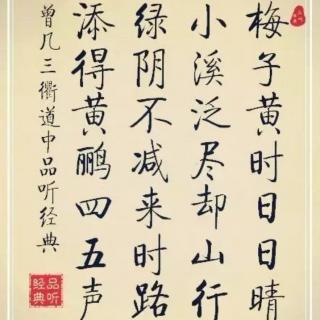 梅子黄时日日晴
小溪泛尽却山行
绿阴不减来时路
添得黄鹂四五声
曾几三衢道中品听经典
品听
经典